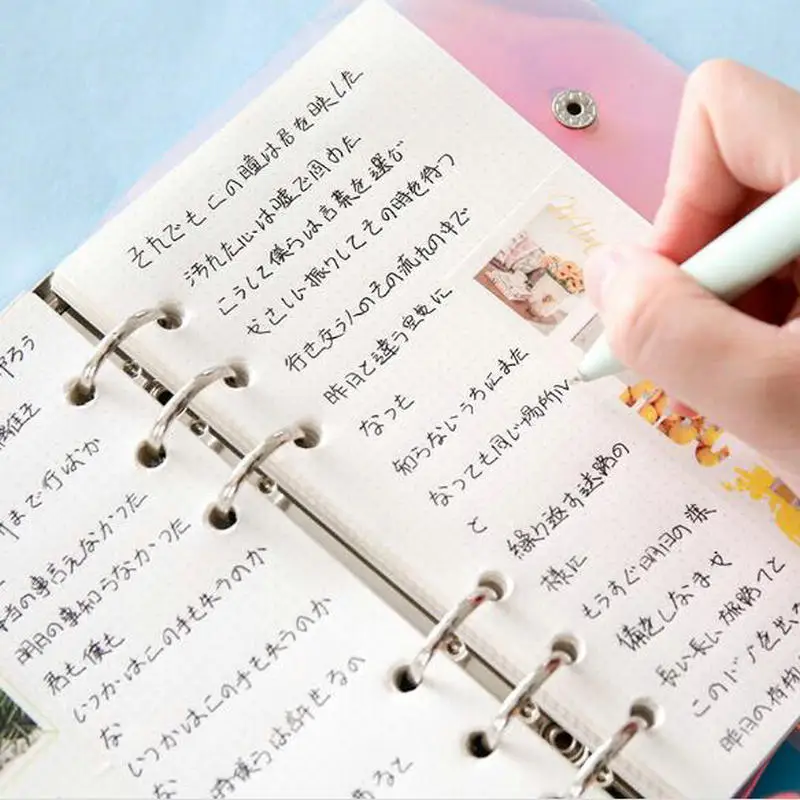 やろう
まで行けば
の事言えなかった
明日の事知らなかった
君も僕も
いつかはこの手も失うのか
な
いつかはこの手も失うのか
な
僕らは許せるの
あると
それでもこの瞳は君を映した
汚れた心は嘘で固めた
こうして僕らは言葉を選び
やさしい振りしてその時を待つ
行き交う人のその流れの中で
昨日と違う空気に
なっても
知らないうちにまた
なっても同じ場所に
と
繰り返す迷路の
様に
もうすぐ明日の準
備をしなきゃ
長い長い旅路でと
このドアを出る
昨日の荷物